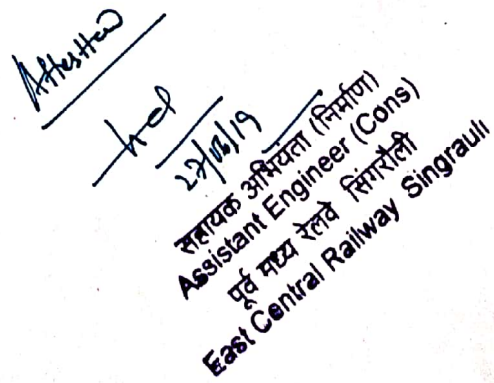 Attested
सहायक अभियंता (निर्माण)
Assistant Engineer (Cons)
पूर्व मध्य रेलवे सिंगरौली
East Central Railway Singrauli